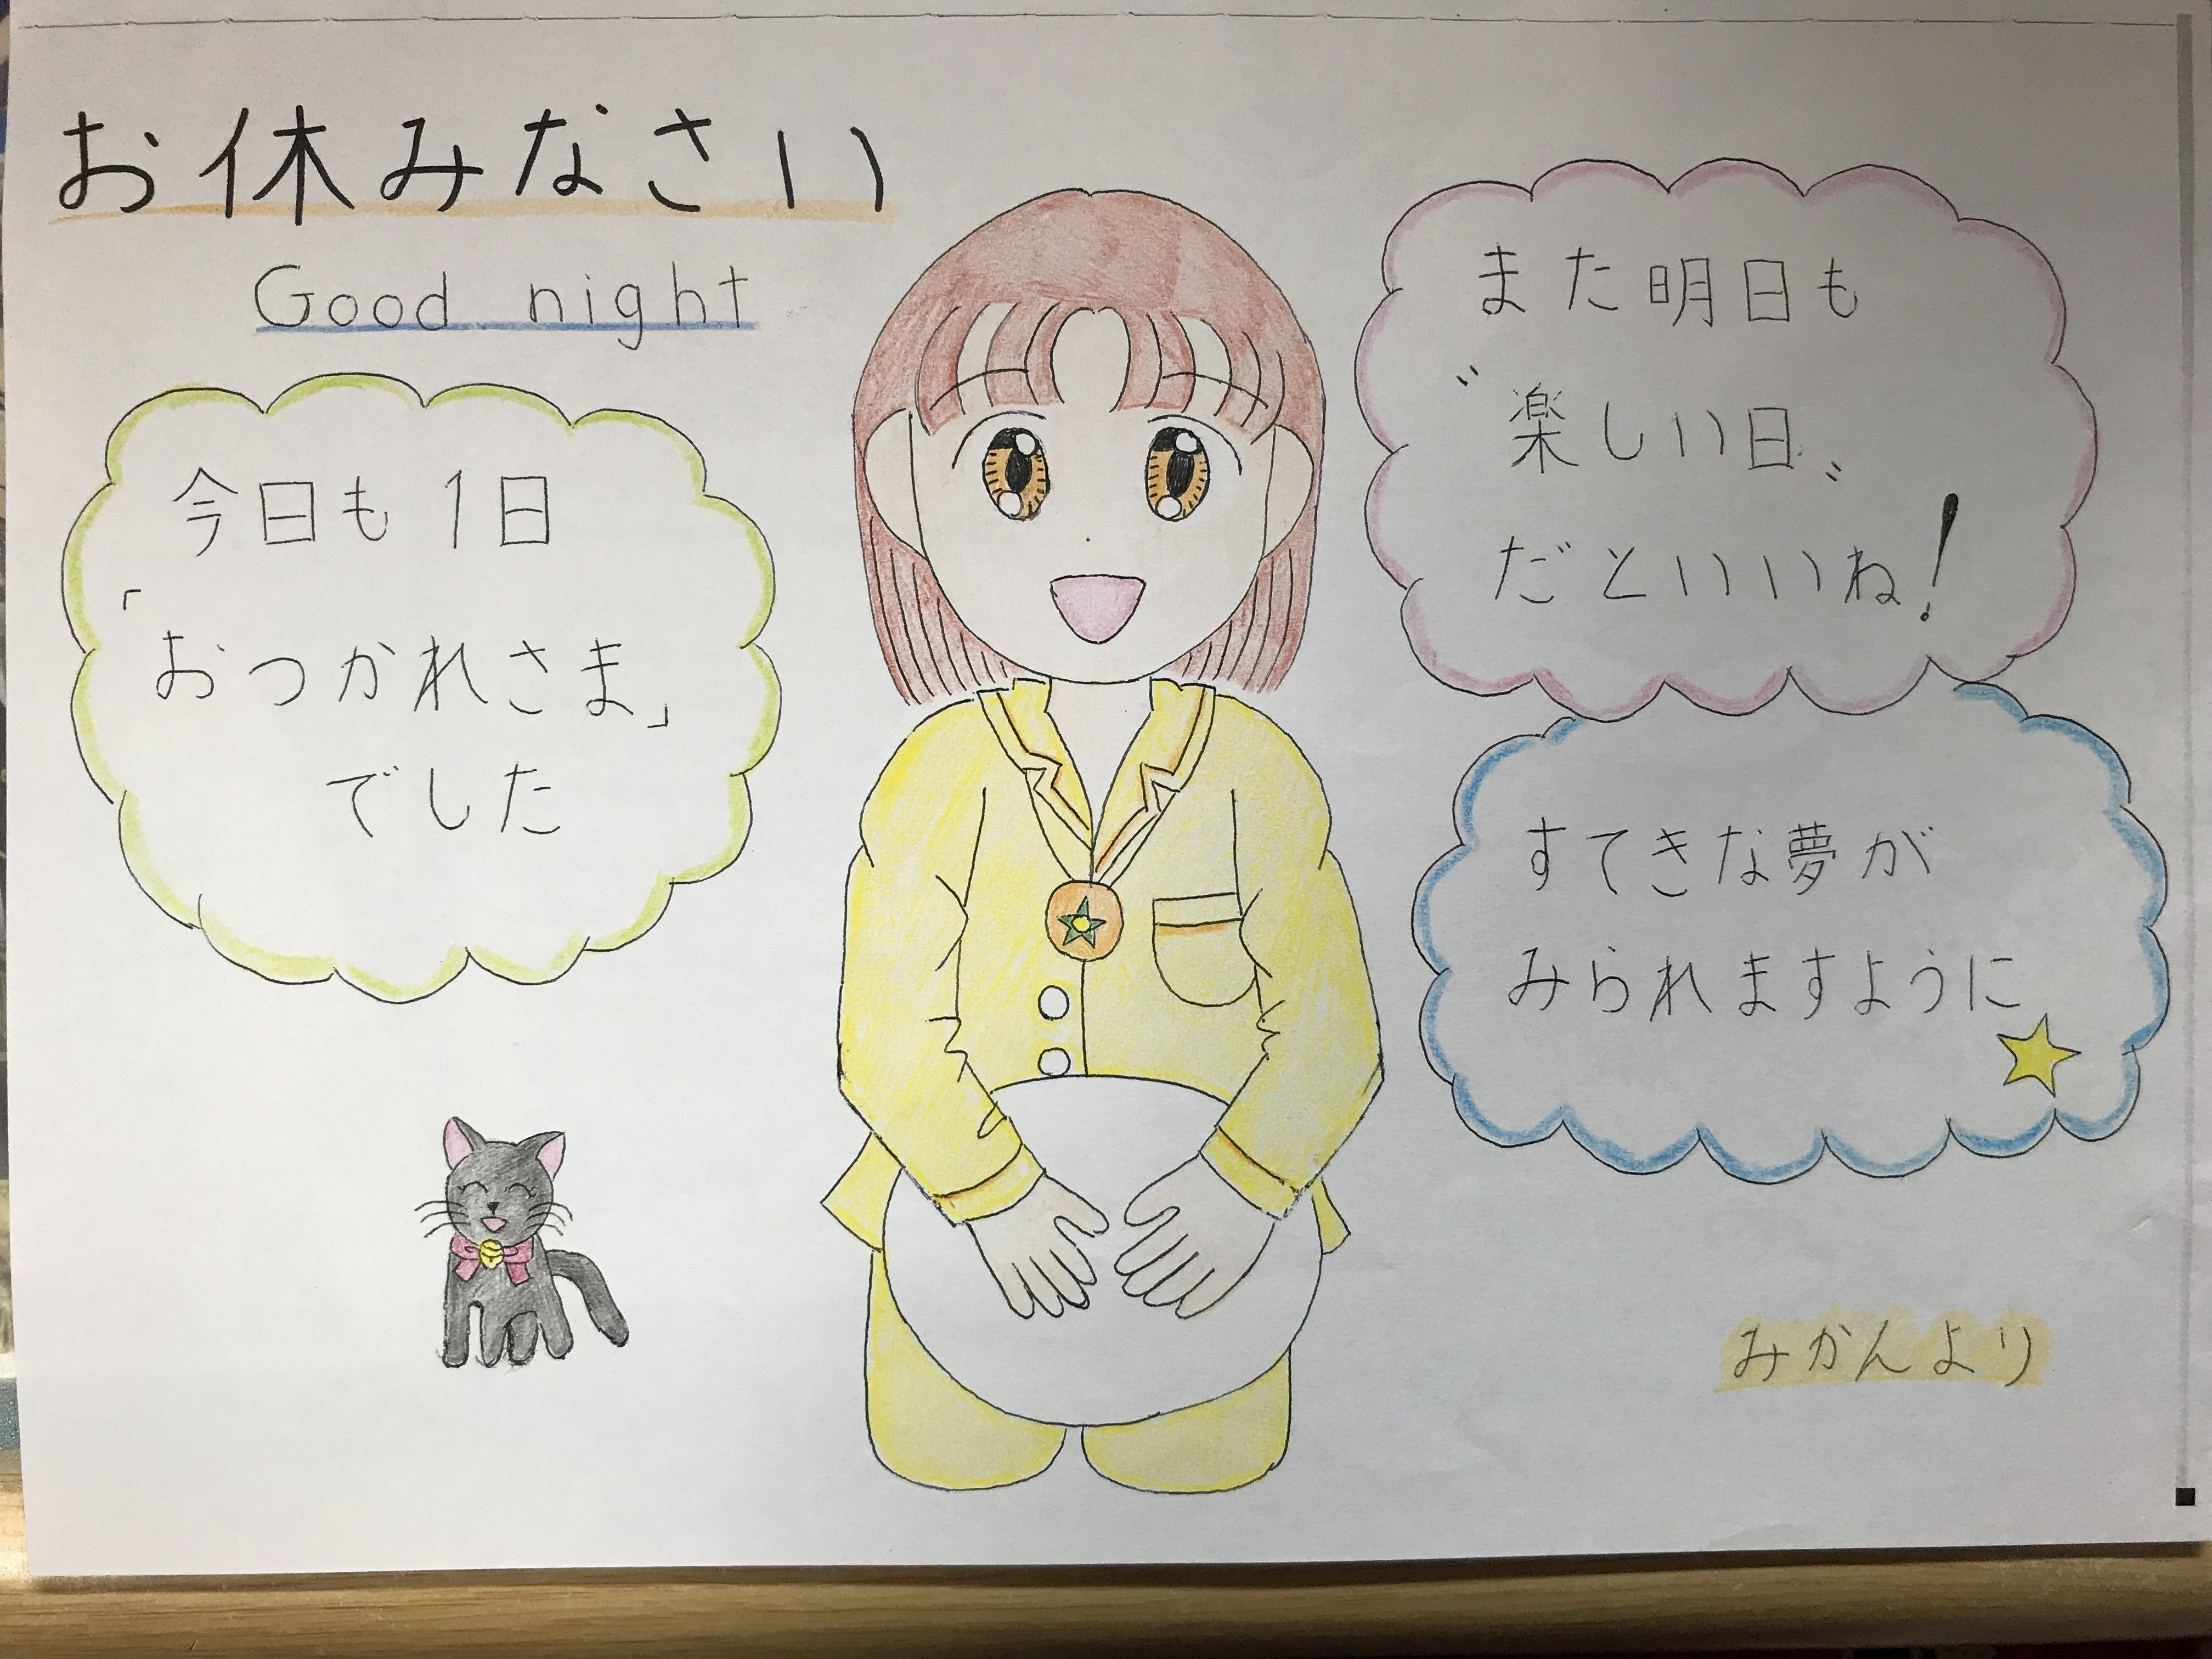 お休みなさい
Good night
今日も1日
「おつかれさま」
でした
また明日も
〝楽しい日〟
だといいね!
すてきな夢が
みられますように
みかんより